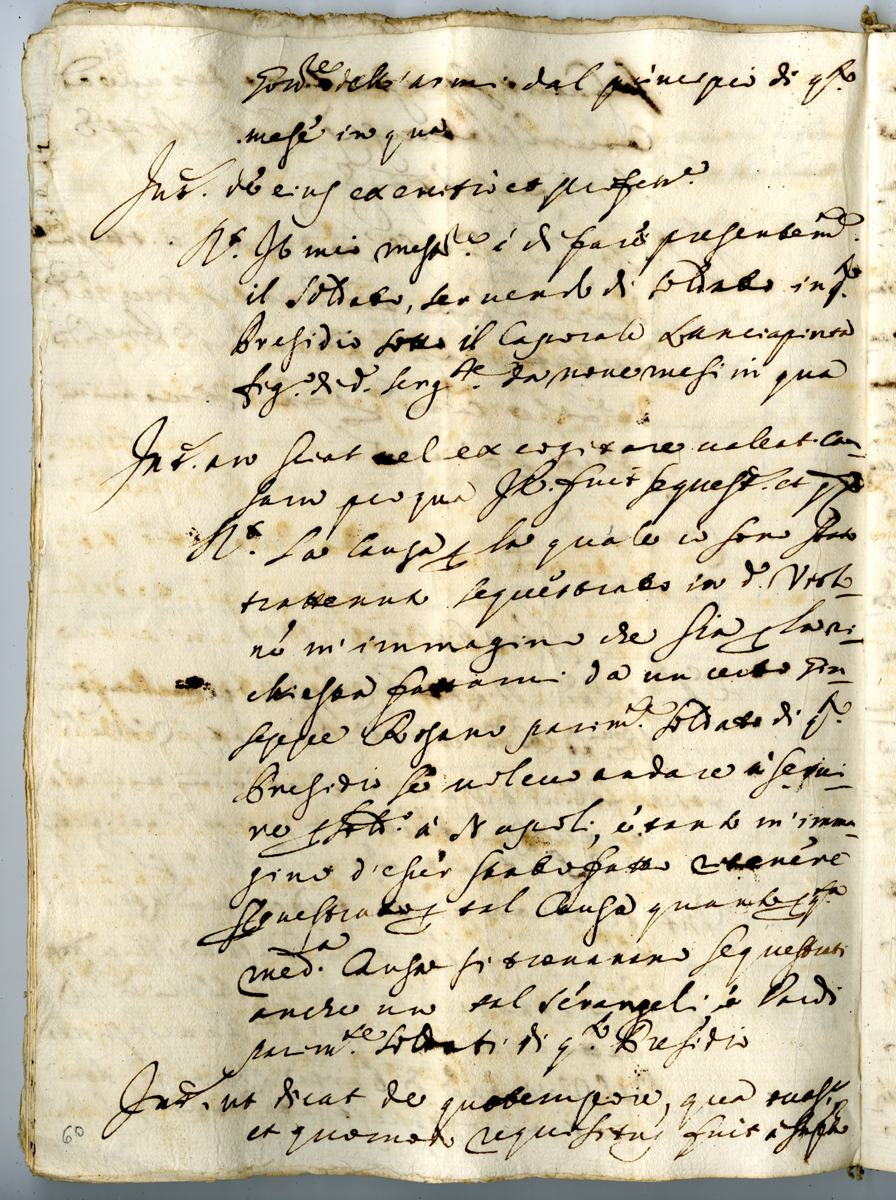 Gov.re dell'armi dal principio di q.sto
mese in qua
Int. de eius exercitio et profess.e
R. Il mio mest.e è di fare presentem.te
il soldato, servendo di soldato in q.o
Presidio sotto il Caporale Lanciapinta
sig. di d. serg.te da nove mesi in qua
Int. an sciat vel excogitare valeat cau-
sam pro qua Ip. fuit sequest. et
R. La causa p la quale io sono stato
trattenuto sequestrato in d.
m'immagino che sia p la ri-
chiesta fattami da un certo Giu-
seppe Rosano parim.te soldato di q.o
Presidio se volevo andare à servi-
re p sold.o à Napoli, e tanto m'imma-
gino d'esser stato fatto ritenere
sequestrato p tal causa quanto p q.sta
med.a causa si trovarono sequestrati
anche un tal Serangeli, e Pardi
parim.te soldati di q.o Presidio
Int. ut dicat de quo tempore, qua
et quomodo requisitus fuit à
60